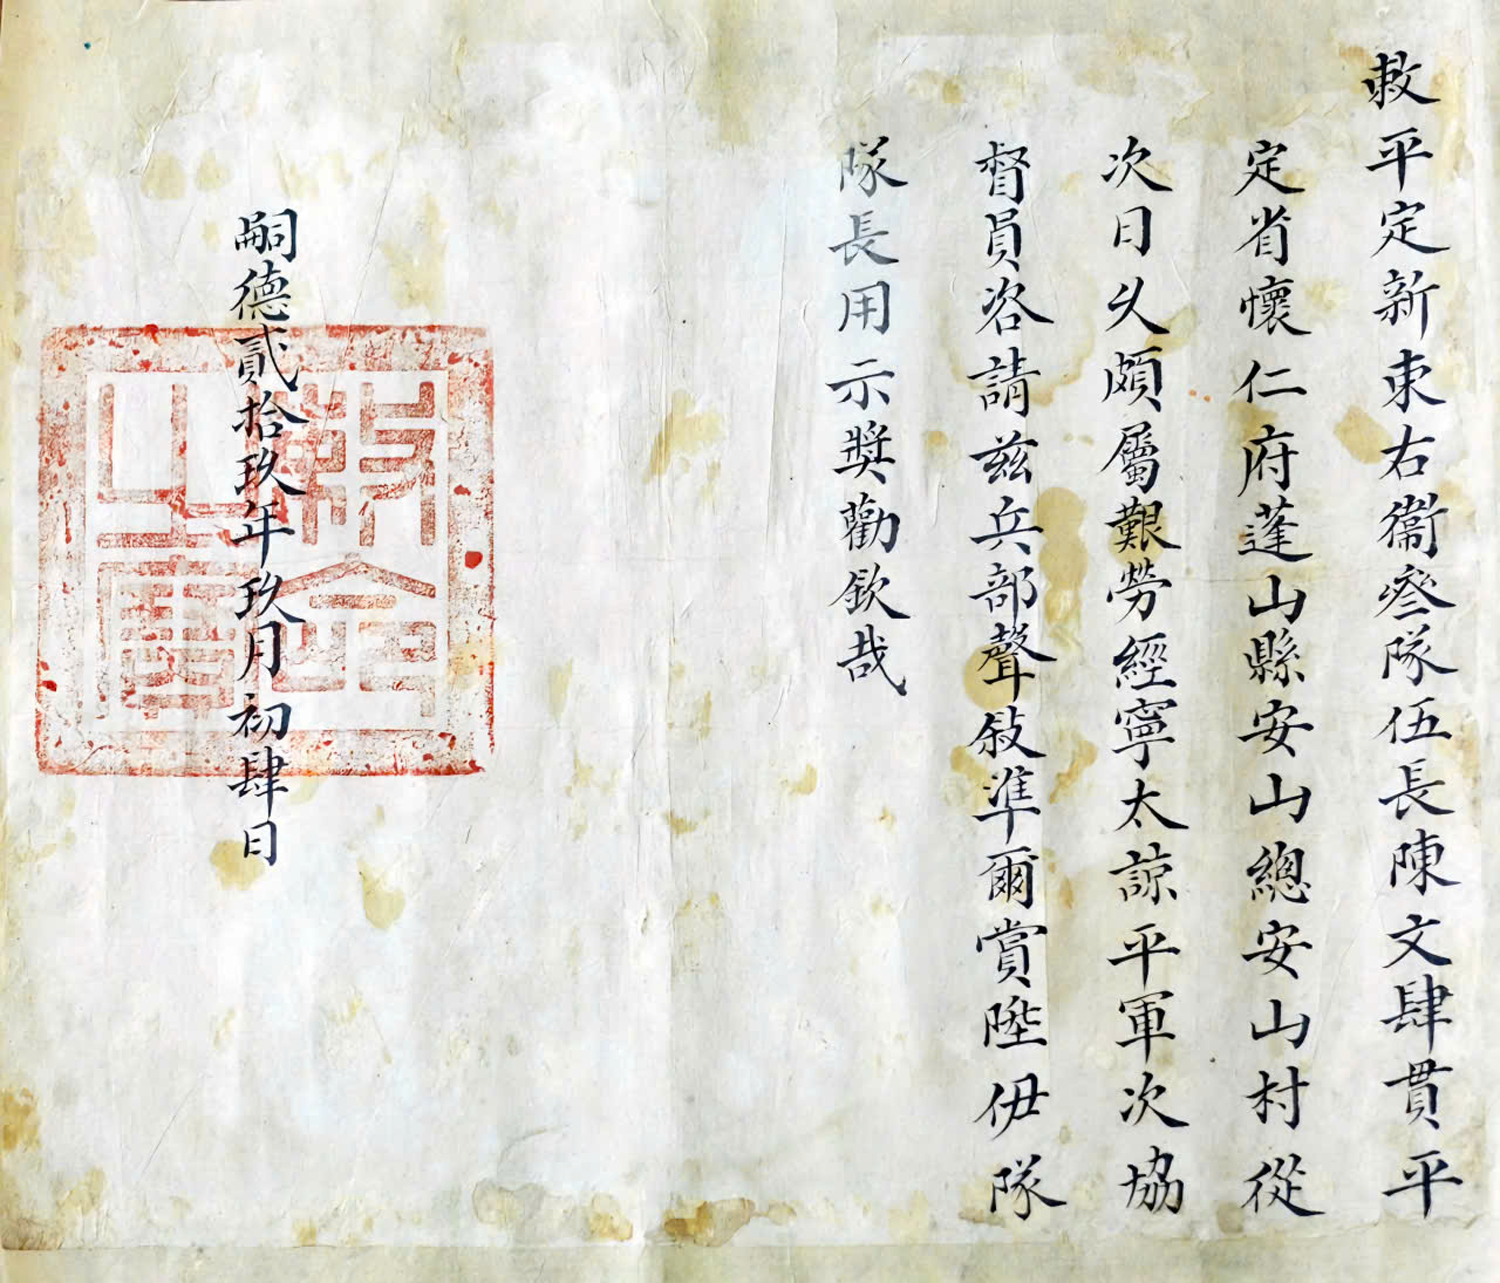 敕平定新東右衞叄隊伍長陳文肆貫平
定省懷仁府蓬山縣安山總安山村從
次日久頗屬艱勞經寧太諒平軍次協
督員咨請兹兵部聲敍準爾賞陞伊隊
隊長用示獎勸欽哉
嗣德貳拾玖年玖月初肆日